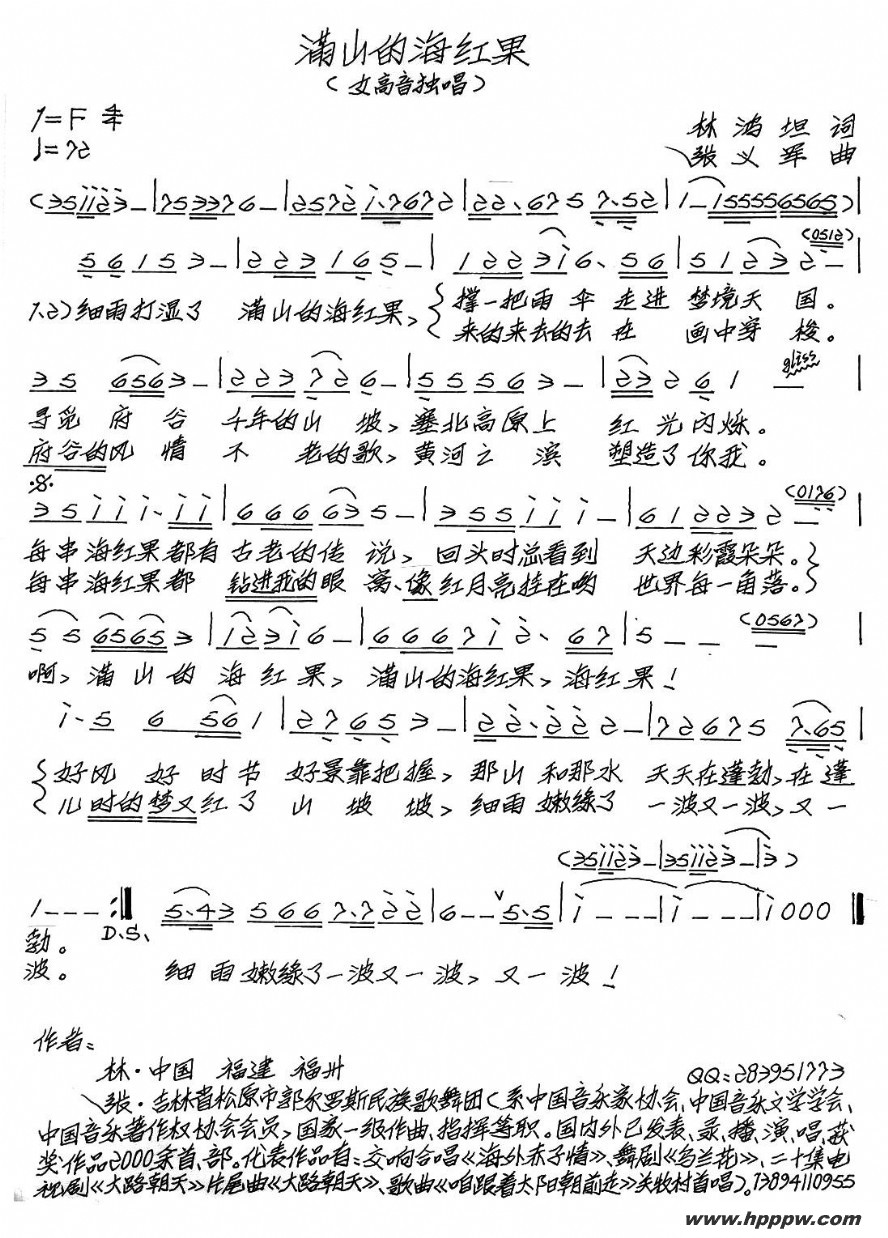 满山的海红果
（女高音独唱）
1=F 4/4
林鸿坦 词
♩=72
张义军 曲
(35i i23-|75 3376-|2572 i·767 2|22·67 5 7·52|1-1555556565)|
5615 3-|223 165-|122 3i6·56|512 32-(0512)|
1.2)细雨打湿了 满山的海红果，{撑一把雨伞 走进 梦境天国。
来的来去的去 在 画中穿梭。
35 6563-|223 726-|55563-|2326 1 - gliss|
寻觅 府谷 千年的山坡，塞北高原上 红光闪烁。
府谷的风情 不老的歌，黄河之滨 塑造了你我。
𝄋
35ii i·ii|6666 35-|355iii-|612232-(0176)|
每串海红果都有 古老的传说，回头时总看到 天边彩霞朵朵。}
每串海红果都 钻进我的眼窝、像红月亮挂在哟 世界每一角落。}
55 65653|i23i6-|6667i2·67|5--(0567)|
啊，满山的海红果，满山的海红果，海红果！
i·5 6 561|27653-|22·222-|72675 7·65|
{好风 好时节 好景靠把握，那山和那水 天天在蓬勃，在蓬
{儿时的梦又红了 山坡坡，细雨嫩绿了 一波又一波，又一
(35ii23-|35ii23-|3)
1---:‖ 5·43 566 7·722|6--5·5|i---|i---|i000‖
勃。 D.S.
波。 细雨嫩绿了一波又一波，又一波！
作者：
林·中国 福建 福州 QQ：283951773
张·吉林省松原市郭尔罗斯民族歌舞团（系中国音乐家协会、中国音乐文学学会、
中国音乐著作权协会会员，国家一级作曲、指挥等职。国内外已发表、录、播、演、唱、获
奖作品2000余首、部。代表作品有：交响合唱《海外赤子情》、舞剧《乌兰花》、二十集电
视剧《大路朝天》片尾曲《大路朝天》、歌曲《咱跟着太阳朝前走》关牧村首唱）。13894110955
www.hpppw.com